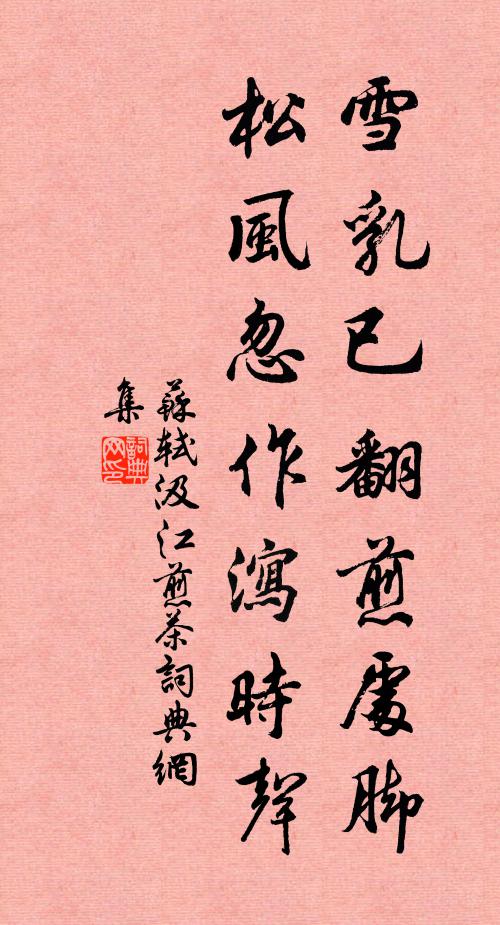 雪乳已翻煎處脚
松風忽作瀉時聲
蘇軾汲江煎茶詞典網
集
詞典
网印